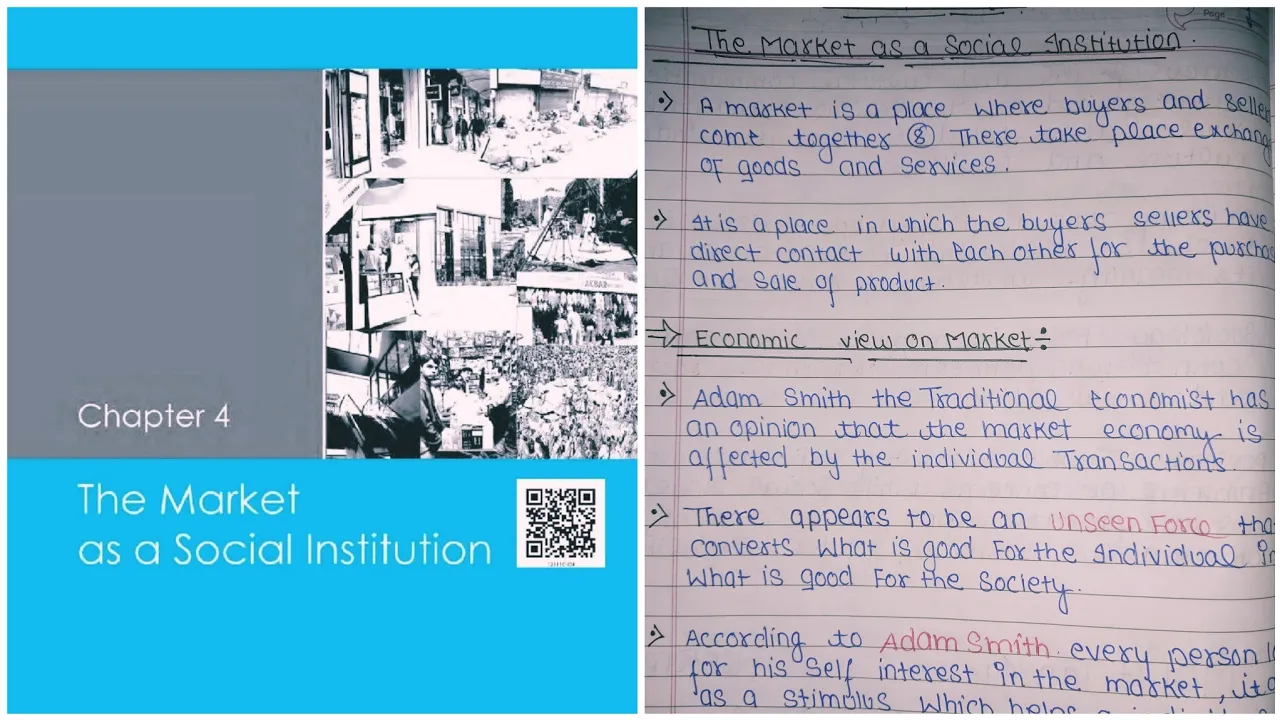 Chapter 4
The Market
as a Social Institution
Page
The Market as a Social Institution.
A market is a place where buyers and seller
come together & There take place exchang
of goods and services.
It is a place in which the buyers sellers have
direct contact with each other for the purcha
and sale of product.
Economic view on Market÷
Adam Smith the Traditional economist has
an opinion that the market economy is
affected by the individual Transactions.
There appears to be an unseen Force tha
converts what is good For the Individual in
what is good For the Society.
According to Adam Smith every person
for his self interest in the market, it
as a stimulus which helps